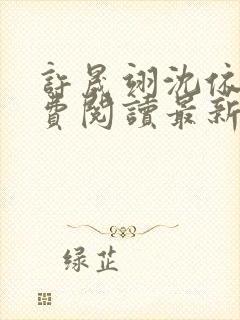 許晟翊沈依
費閱讀最新
绿芷